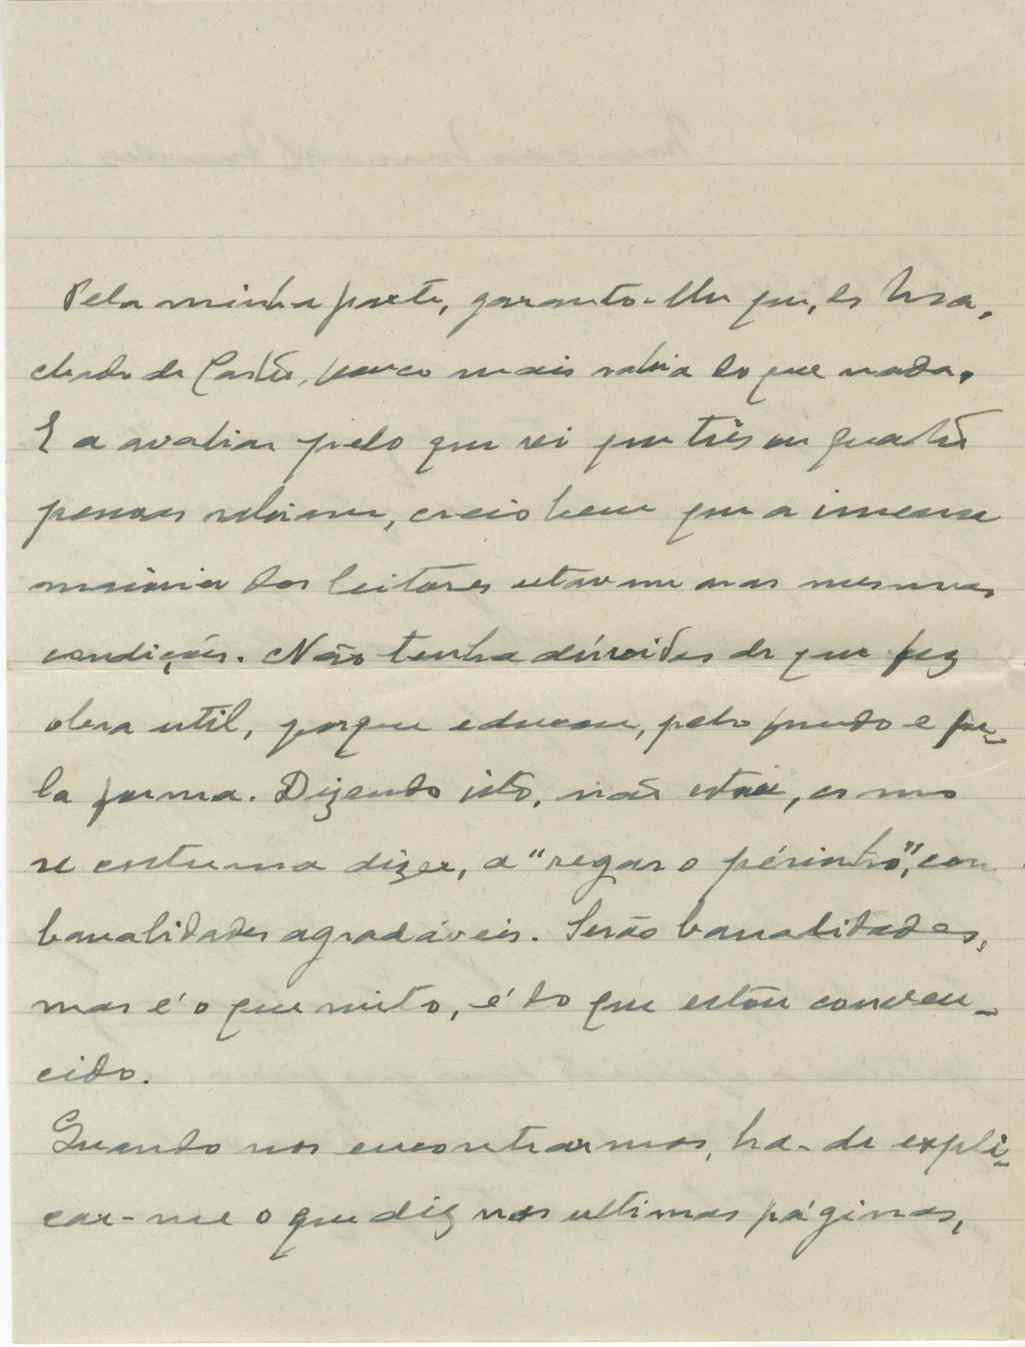 Pela minha parte, garanto-lhe que, de Ma-
chado de Castro, pouco mais sabia do que nada.
E a avaliar pelo que sei que três ou quatro
pessoas sabiam, creio bem que a imensa
maioria dos leitores estavam nas mesmas
condições. Não tenha dúvidas de que fez
obra util, porque educou, pelo fundo e pe-
la forma. Dizendo isto, não estou, como
se costuma dizer, a "regar o pésinho", com
banalidades agradáveis. Serão banalidades,
mas é o que sinto, é do que estou conven-
cido.
Quando nos encontrarmos, ha-de expli-
car-me o que diz nas ultimas páginas,